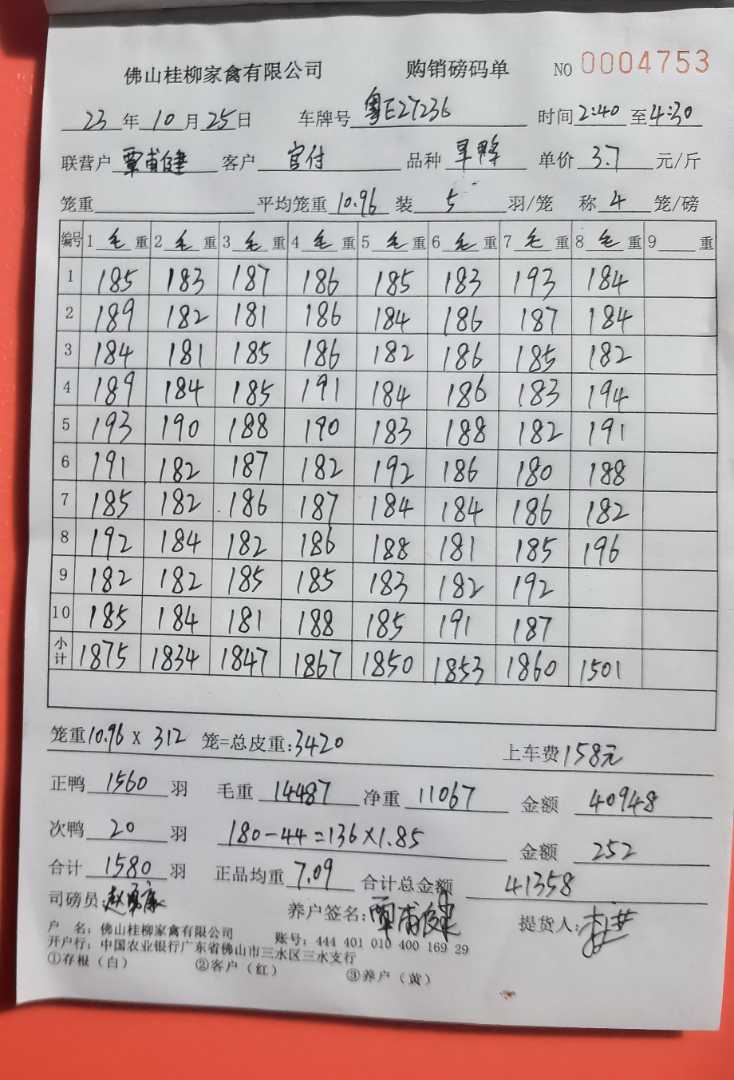 佛山桂柳家禽有限公司 购销磅码单 NO 0004753
23 年 10 月 25 日 车牌号 粤E27236 时间 2:40 至 4:30
联营户 覃甫健 客户 官付 品种 旱鸭 单价 3.7 元/斤
笼重 平均笼重 10.96 装 5 羽/笼 称 4 笼/磅
编号 1 毛 重 2 毛 重 3 毛 重 4 毛 重 5 毛 重 6 毛 重 7 毛 重 8 毛 重 9 重
1 185 183 187 186 185 183 193 184
2 189 182 181 186 184 186 187 184
3 184 181 185 186 182 186 185 182
4 189 184 185 191 184 186 183 194
5 193 190 188 190 183 188 182 191
6 191 182 187 182 192 186 180 188
7 185 182 186 187 184 184 186 182
8 192 184 182 186 188 181 185 196
9 182 182 185 185 183 182 192
10 185 184 181 188 185 191 187
小计 1875 1834 1847 1867 1850 1853 1860 1501
笼重 10.96 x 312 笼=总皮重: 3420 上车费 158元
正鸭 1560 羽 毛重 14487 净重 11067 金额 40948
次鸭 20 羽 180-44=136×1.85 金额 252
合计 1580 羽 正品均重 7.09 合计总金额 41358
司磅员: 养户签名: 覃甫健 提货人:
户 名: 佛山桂柳家禽有限公司 账号: 444 401 010 400 169 29
开户行: 中国农业银行广东省佛山市三水区三水支行
①存根(白) ②客户(红) ③养户(黄)